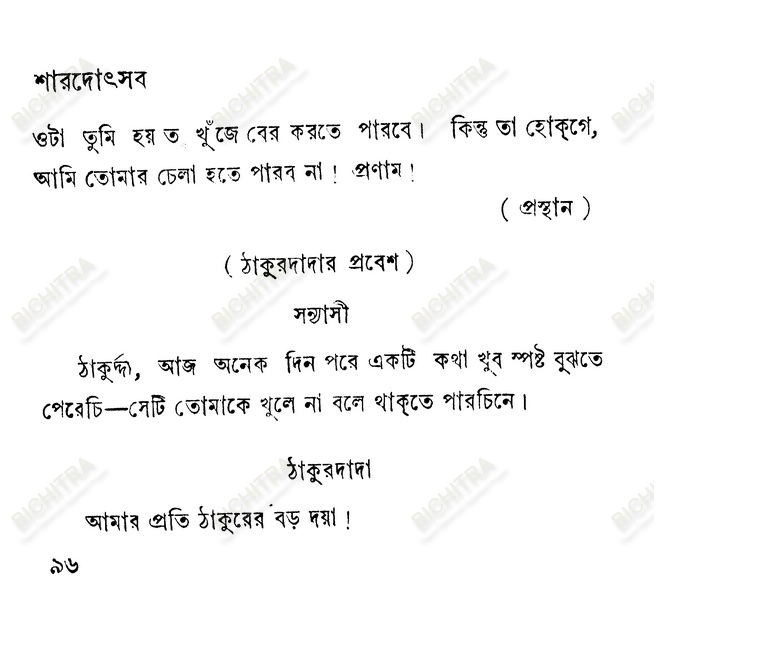 শারদোৎসব
ওটা তুমি হয় ত খুঁজে বের করতে পারবে। কিন্তু তা হোক্‌গে,
আমি তোমার চেলা হতে পারব না! প্রণাম!
( প্রস্থান )
( ঠাকুরদাদার প্রবেশ )
সন্ন্যাসী
ঠাকুর্দ্দা, আজ অনেক দিন পরে একটি কথা খুব স্পষ্ট বুঝতে
পেরেচি—সেটি তোমাকে খুলে না বলে থাক্‌তে পারচিনে।
ঠাকুরদাদা
আমার প্রতি ঠাকুরের বড় দয়া!
৯৬
BICHITRA